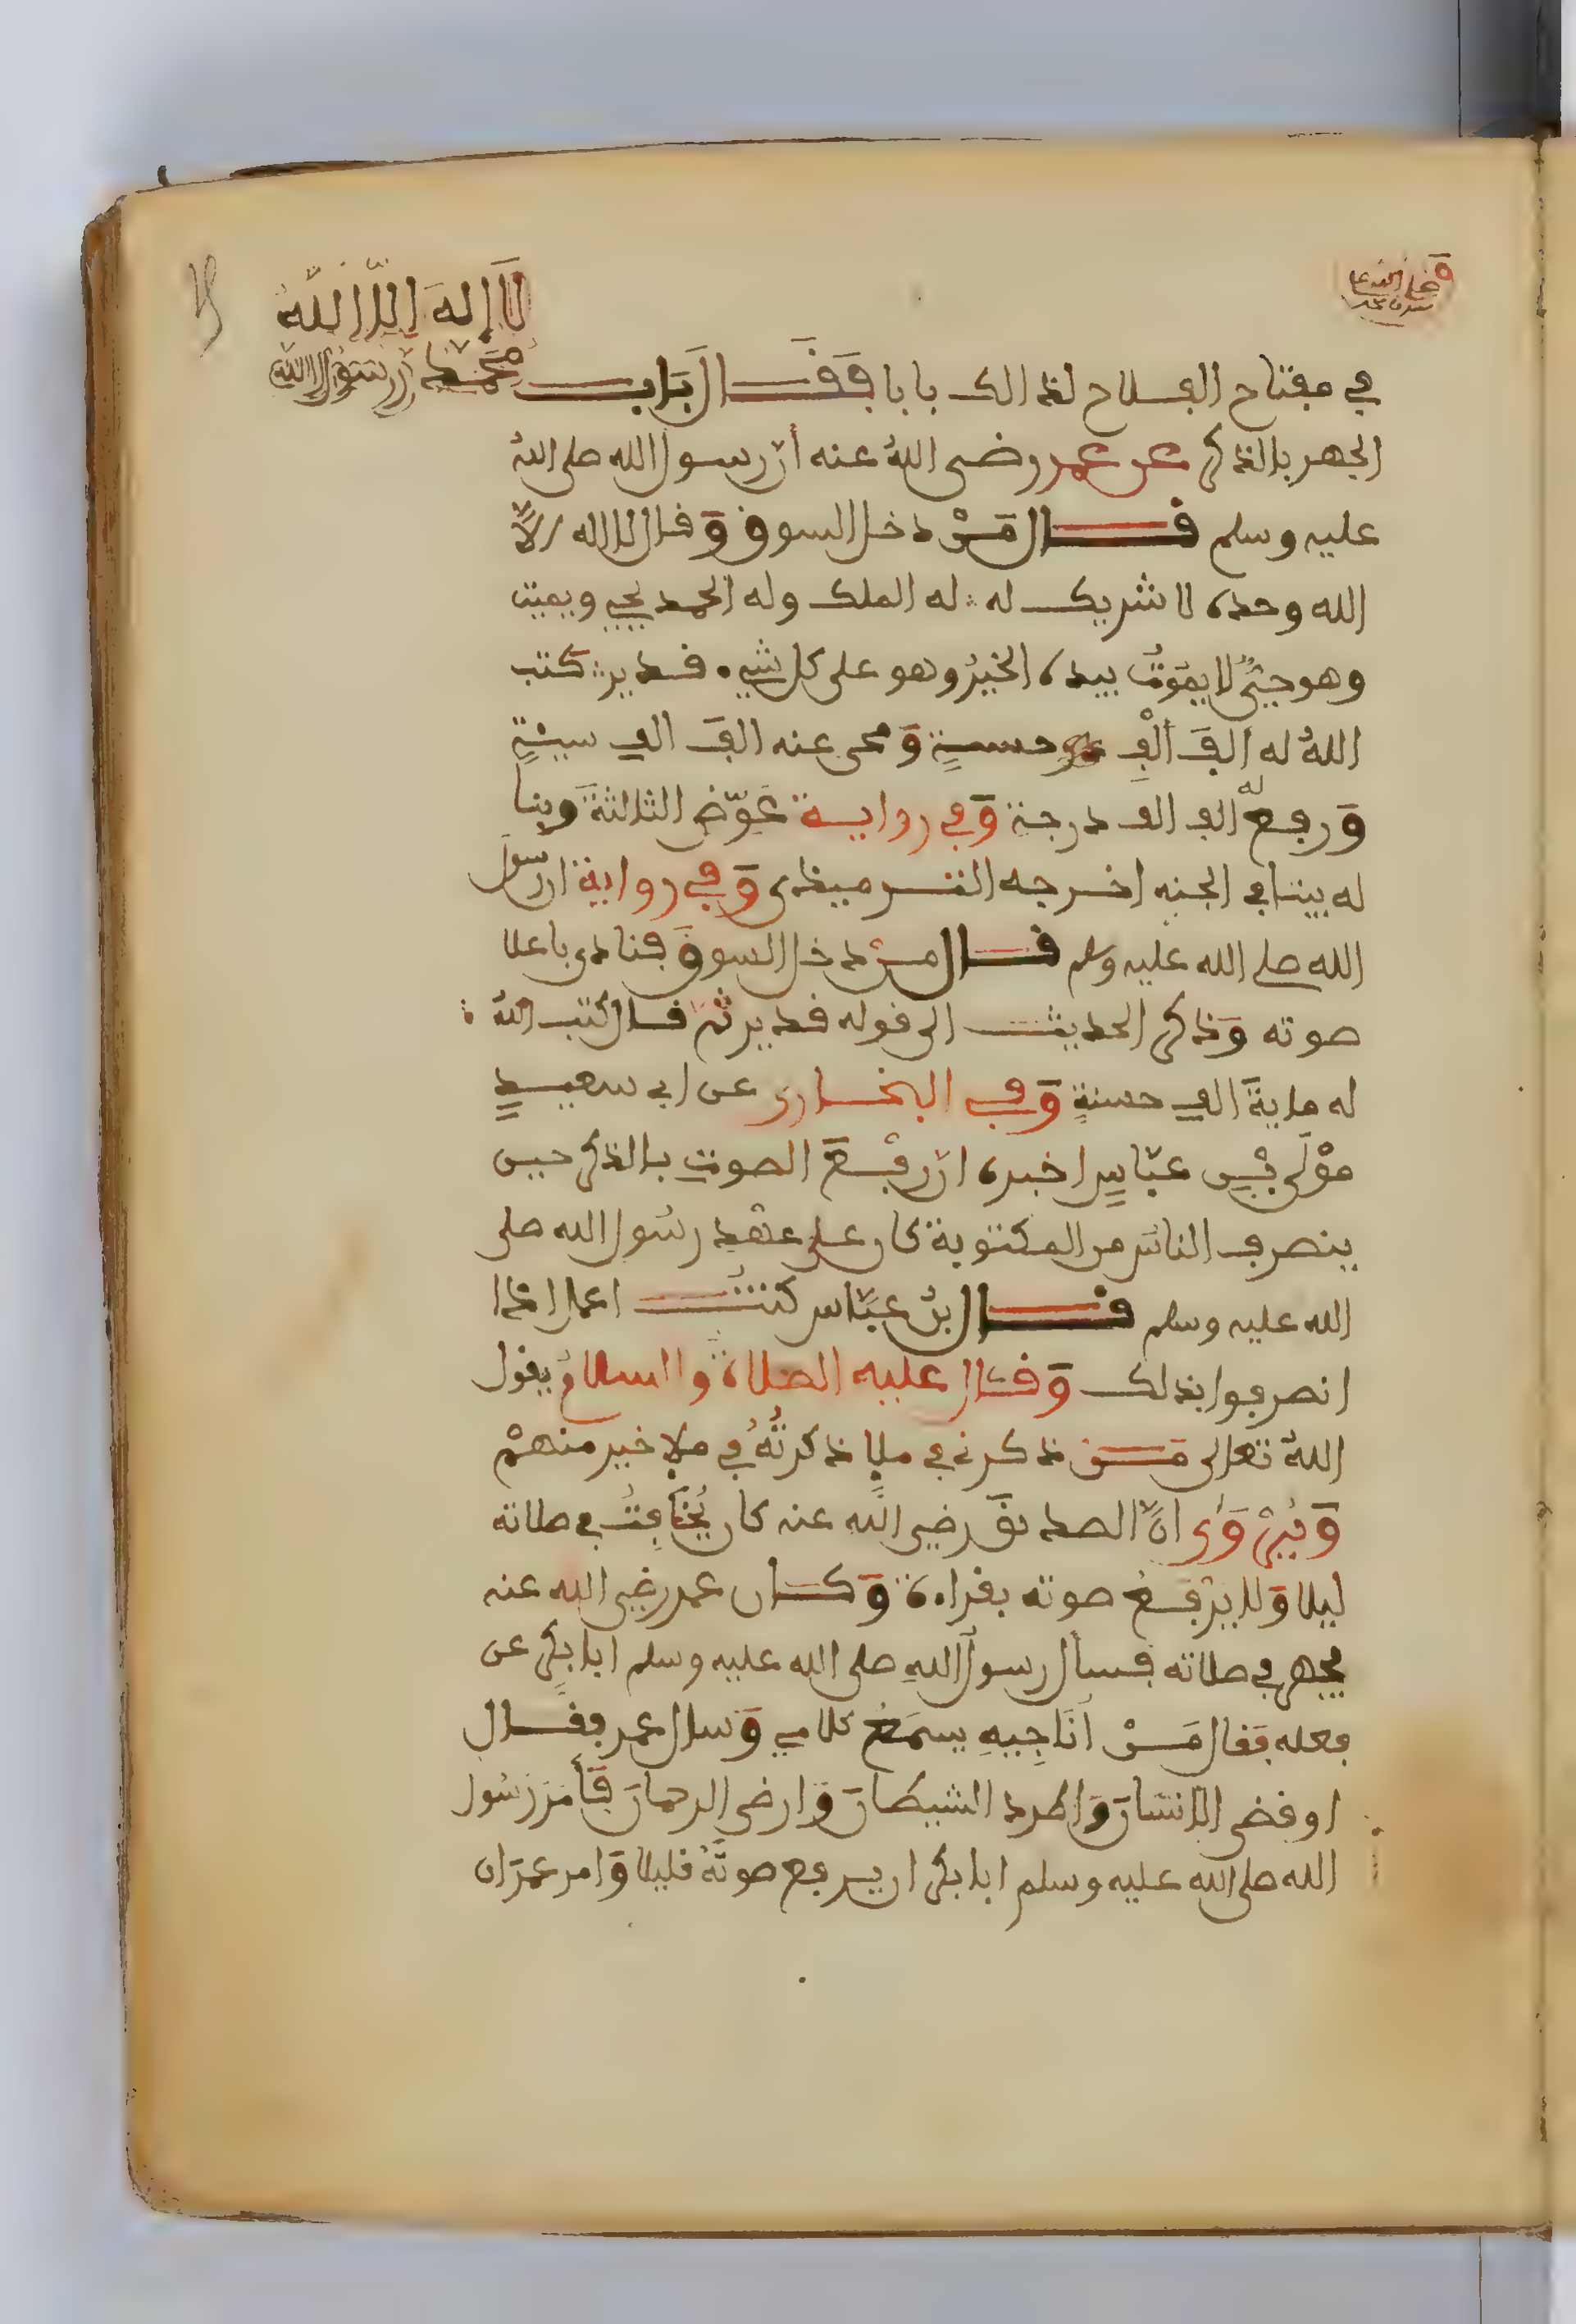 لَا إله إلّا الله
محمد رسول الله
صلى الله على
سيدنا محمد
في مفتاح الفلاح لذالك بابا فَقَال بَاب
الجهر بالذكر عن عمر رضى اللهُ عنه أنّ رسول الله صلى اللهُ
عليه وسلم قال مَنْ دخل السوق وَقال لا اله الّا
الله وحده لا شريك له له الملك وله الحمد يحيي ويميت
وهو حيٌّ لا يموتُ بيده الخيرُ وهو على كل شيء قدير كتب
اللهُ له الفَ ألْفِ حسنةٍ وَمحى عنه الفَ الف سيئةٍ
وَرفع له الف الف درجة وَفي رواية عَوّضَ الثالثةَ وبنا
له بيتا في الجنه اخرجه الترميذى وَفي رواية ان رسول
الله صلى الله عليه وسلم قال منْ دخل السوق فنادى باعلا
صوته وَذكر الحديث الى قوله قدير ثم قال كتب اللهُ
له مايةَ الف حسنةٍ وَفي البخارى عن ابي سعيدٍ
مَوْلَى بْنِ عبّاسٍ اخبره انّ رفْعَ الصوتِ بالذكر حين
ينصرف الناسُ من المكتوبة كان على عهْدِ رسُول الله صلى
الله عليه وسلم قال بنُ عبَّاس كنتُ اعلم اذا
انصرفوا بذلك وَقال عليه الصلاة والسلامُ يقول
اللهُ تعالى مَن ذكرنى في ملإٍ ذكرتُهُ في ملإ خير منهمْ
وَيُرْوَى انَّ الصديق رضي الله عنه كان يُخَافِتُ في صلاته
ليلا وَلا يرْفعُ صوته بقراءة وَكان عمر رضي الله عنه
يجهر في صلاته فسأل رسول اللهِ صلى الله عليه وسلم ابا بكرٍ عن
فعله فقال مَنْ أنَاجِيهِ يسمَعُ كلامي وَسال عمر فقال
اوقض الانسَانَ وَاطرد الشيطانَ وَارضى الرحمانَ فَأمَرَ رَسُول
الله صلى الله عليه وسلم ابا بكر ان يرفع صوتَهُ قليلا وَامر عمَرَ ان